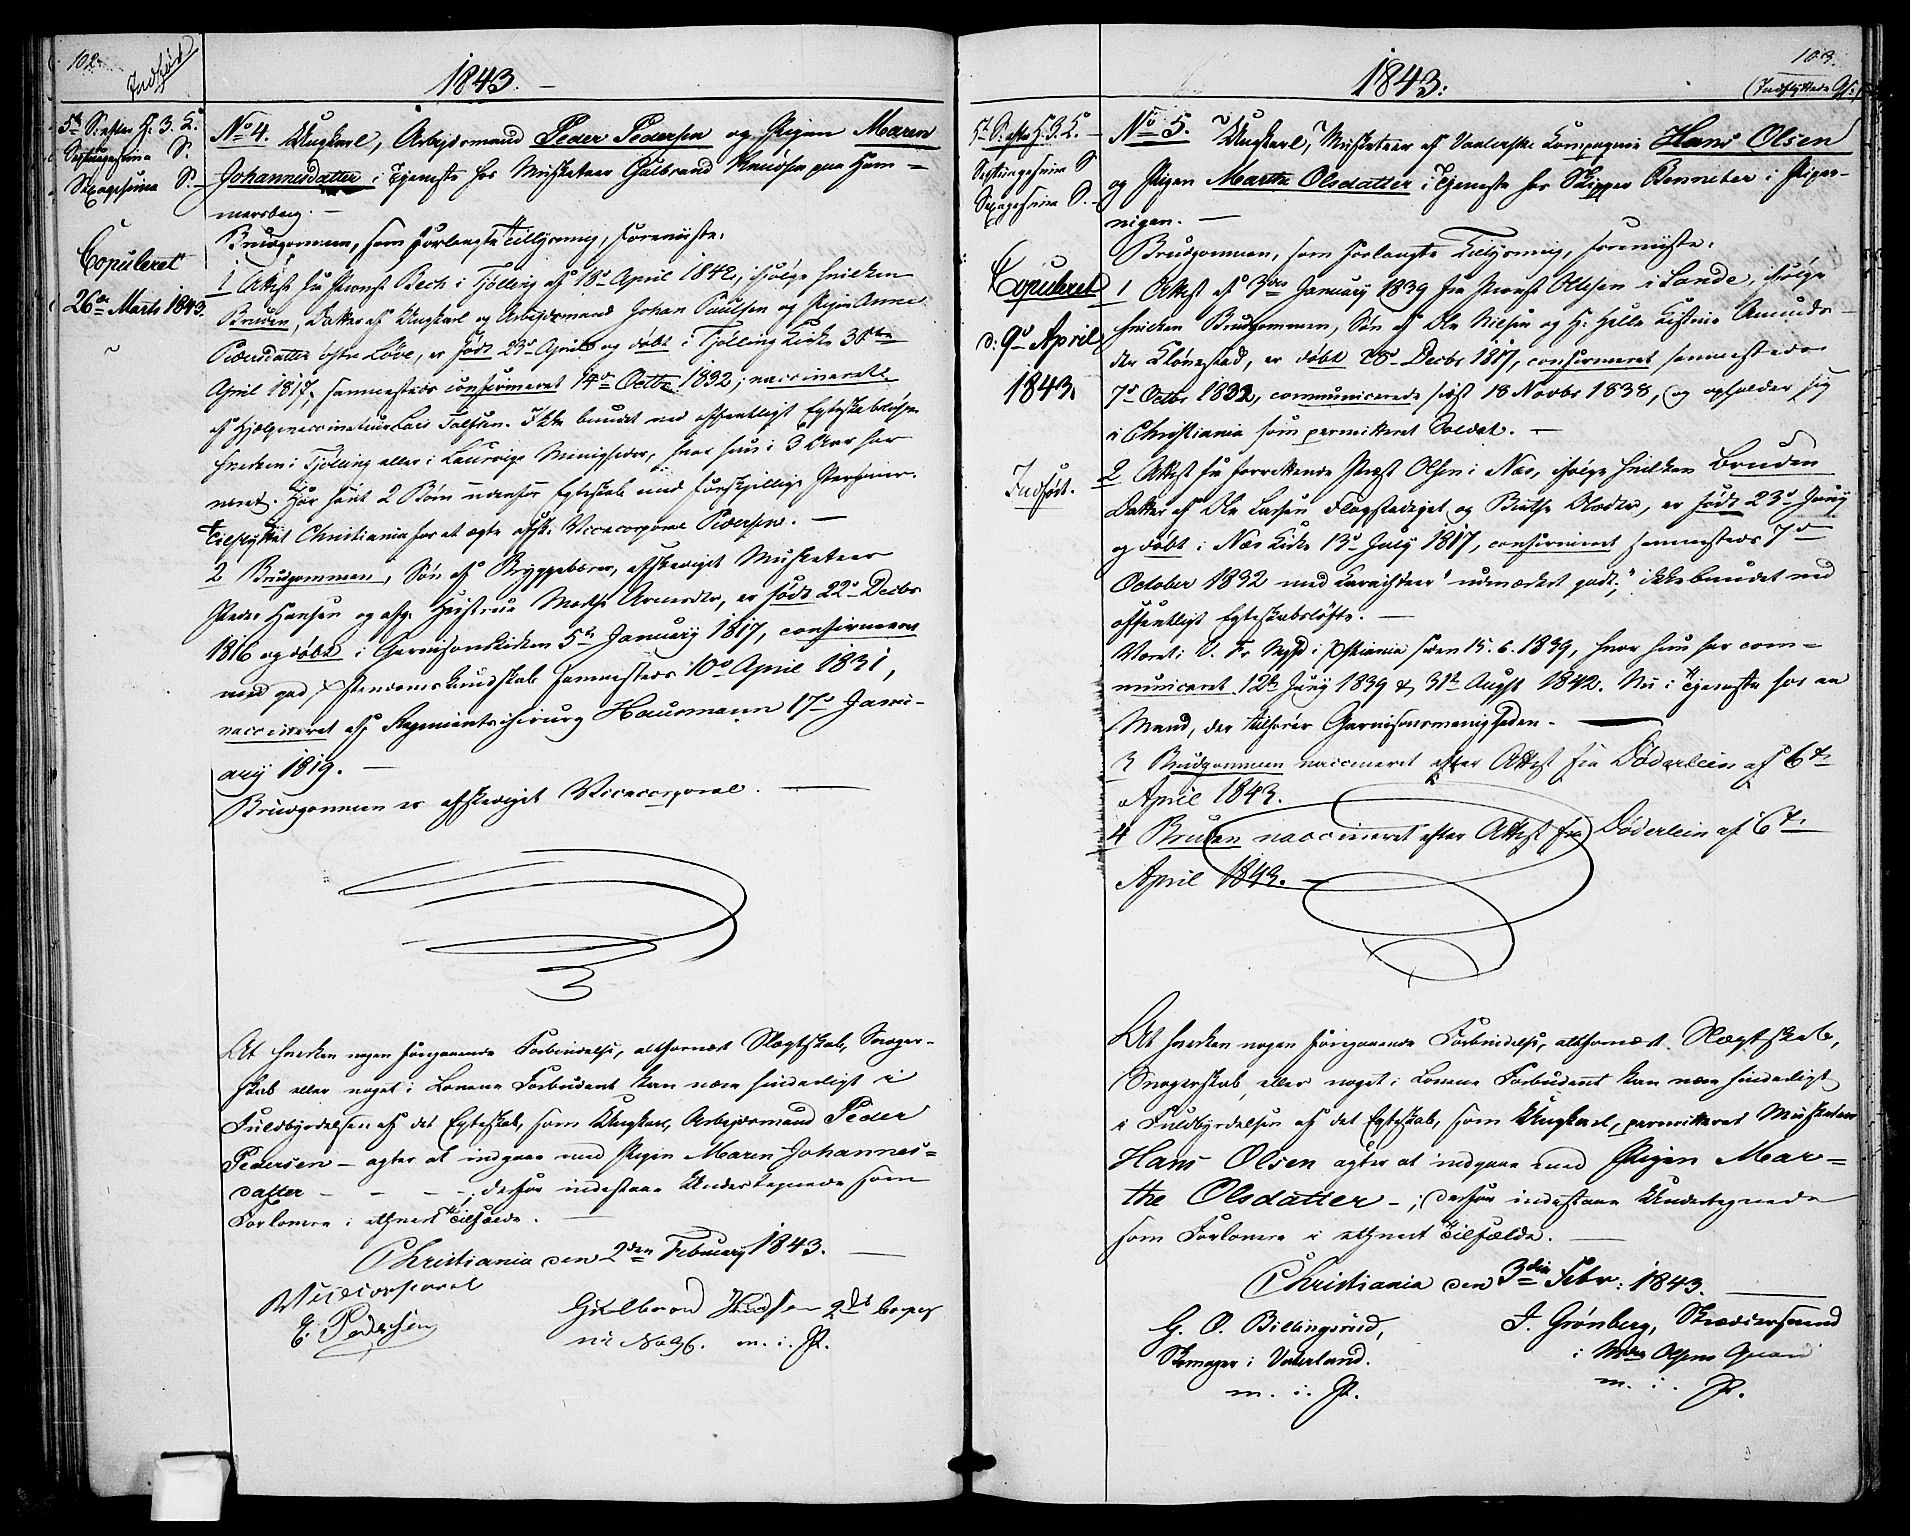 102.
Indført
1843.
5te S. efter H. 3. K.
Septuagesima S.
Sexagesima S.
Copuleret
26de Marts 1843.
No 4. Ungkarl, Arbejdsmand Peder Pedersen og Pigen Maren
Johannesdatter i Tjeneste hos Musketeer Gulbrand Knudsen paa Ham-
mersborg.
Brudgommen, som forlangte Tillysning, foreviiste:
1 Attest fra Provst Bech i Tjølling af 18de April 1842, ifølge hvilken
Bruden, Datter af Ungkarl og Arbejdsmand Johan Paulsen og Pigen Anne
Pedersdatter østre Løve, er født 23de April og døbt i Tjølling Kirke 30te
April 1817, sammesteds confirmeret 14de Octbr 1832; vaccineret
af Hjælpevaccinateur Lars Tolfsen. Ikke bundet ved offentligt Egteskabsløfte
hverken i Tjølling eller i Laurvigs Menigheder, hvor hun i 3 Aar har
været. Har havt 2 Børn udenfor Egteskab med forskjellige Personer.
Tilflyttet Christiania for at ægte afsk. Vicecorporal Pedersen.
2 Brudgommen, Søn af Bryggebærer, afskediget Musketeer
Peder Hansen og afg. Hustrue Marthe Arnesdtr, er født 22de Decbr
1816 og døbt i Garnisonskirken 5te January 1817, confirmeret
med god Christendomskundskab sammesteds 10de April 1831,
vaccineret af Regimentschirurg Hausmann 17de Janu-
ary 1819.
Brudgommen er afskediget Vicecorporal.
At hverken nogen foregaaende Forbindelse, altfornært Slægtskab, Svoger-
skab eller noget i Lovene Forbudent kan være hinderligt i
Fuldbyrdelsen af det Egteskab, som Ungkarl, Arbejdsmand Peder
Pedersen – agter at indgaae med Pigen Maren Johannes-
datter – – – –; derfor indestaae Undertegnede som
Forlovere i ethvert Tilfælde.
Christiania den 2den February 1843.
Vicecorporal
E. Pedersen
Gulbrand Knudsen 2det Comp
No 96. m. i. P.
103.
(Indflyttede
1843:
5te S. efter H. 3. K.
Septuagesima S
Sexagesima S.
Copuleret
d: 9de April
1843.
Indført.
No 5. Ungkarl, Musketeer af Vaalerske Compagnie Hans Olsen
og Pigen Marthe Olsdatter i Tjeneste hos Skipper Benneter i Piper-
vigen.
Brudgommen, som forlangte Tillysning, foreviiste:
1 Attest af 3die January 1839 fra Provst Olesen i Sande, ifølge
hvilken Brudgommen, Søn af Ole Nielsen og H. Helle Kistine Amunds-
dtr Klønestad, er døbt 28de Decbr 1817, confirmeret sammesteds
7de Octbr 1832, communicerede sidst 18 Novbr 1838, og opholder sig
i Christiania som permitteret Soldat.
2 Attest fra forrettende Præst Olsen i Næs, ifølge hvilken Bruden
Datter af Ole Larsen Flagstadejet og Birthe Olsdtr, er født 23de Juny
og døbt i Næs Kirke 13de July 1817, confirmeret sammesteds 7de
October 1832 med Carachteer "udmærket godt", ikke bundet ved
offentligt Egteskabsløfte.
Været i V. Fr Mgd i Xstiania siden 15. 6. 1839, hvor hun har com-
municeret 12te Juny 1839 & 31te Augst 1842. Nu i Tjeneste hos en
Mand, der tilhører Garnisonsmenigheden.
3 Brudgommen vaccineret efter Attest fra Døderlein af 6te
April 1843.
4 Bruden vaccineret efter Attest fra Døderlein af 6te
April 1843.
At hverken nogen foregaaende Forbindelse, altfornært Slægtskab,
Svogerskab, eller noget i Lovene Forbudent kan være hinderligt
i Fuldbyrdelsen af det Egteskab, som Ungkarl, permitteret Musketeer
Hans Olsen agter at indgaae med Pigen Mar-
the Olsdatter –; derfor indestaae Undertegnede
som Forlovere i ethvert Tilfælde.
Christiania den 3die Febr: 1843.
G. O. Billingsrud,
Skomager i Vaterland.
m. i. P.
J. Grønberg, Skrædersvend
i Mdm Olsens Gaard
m. i. P.